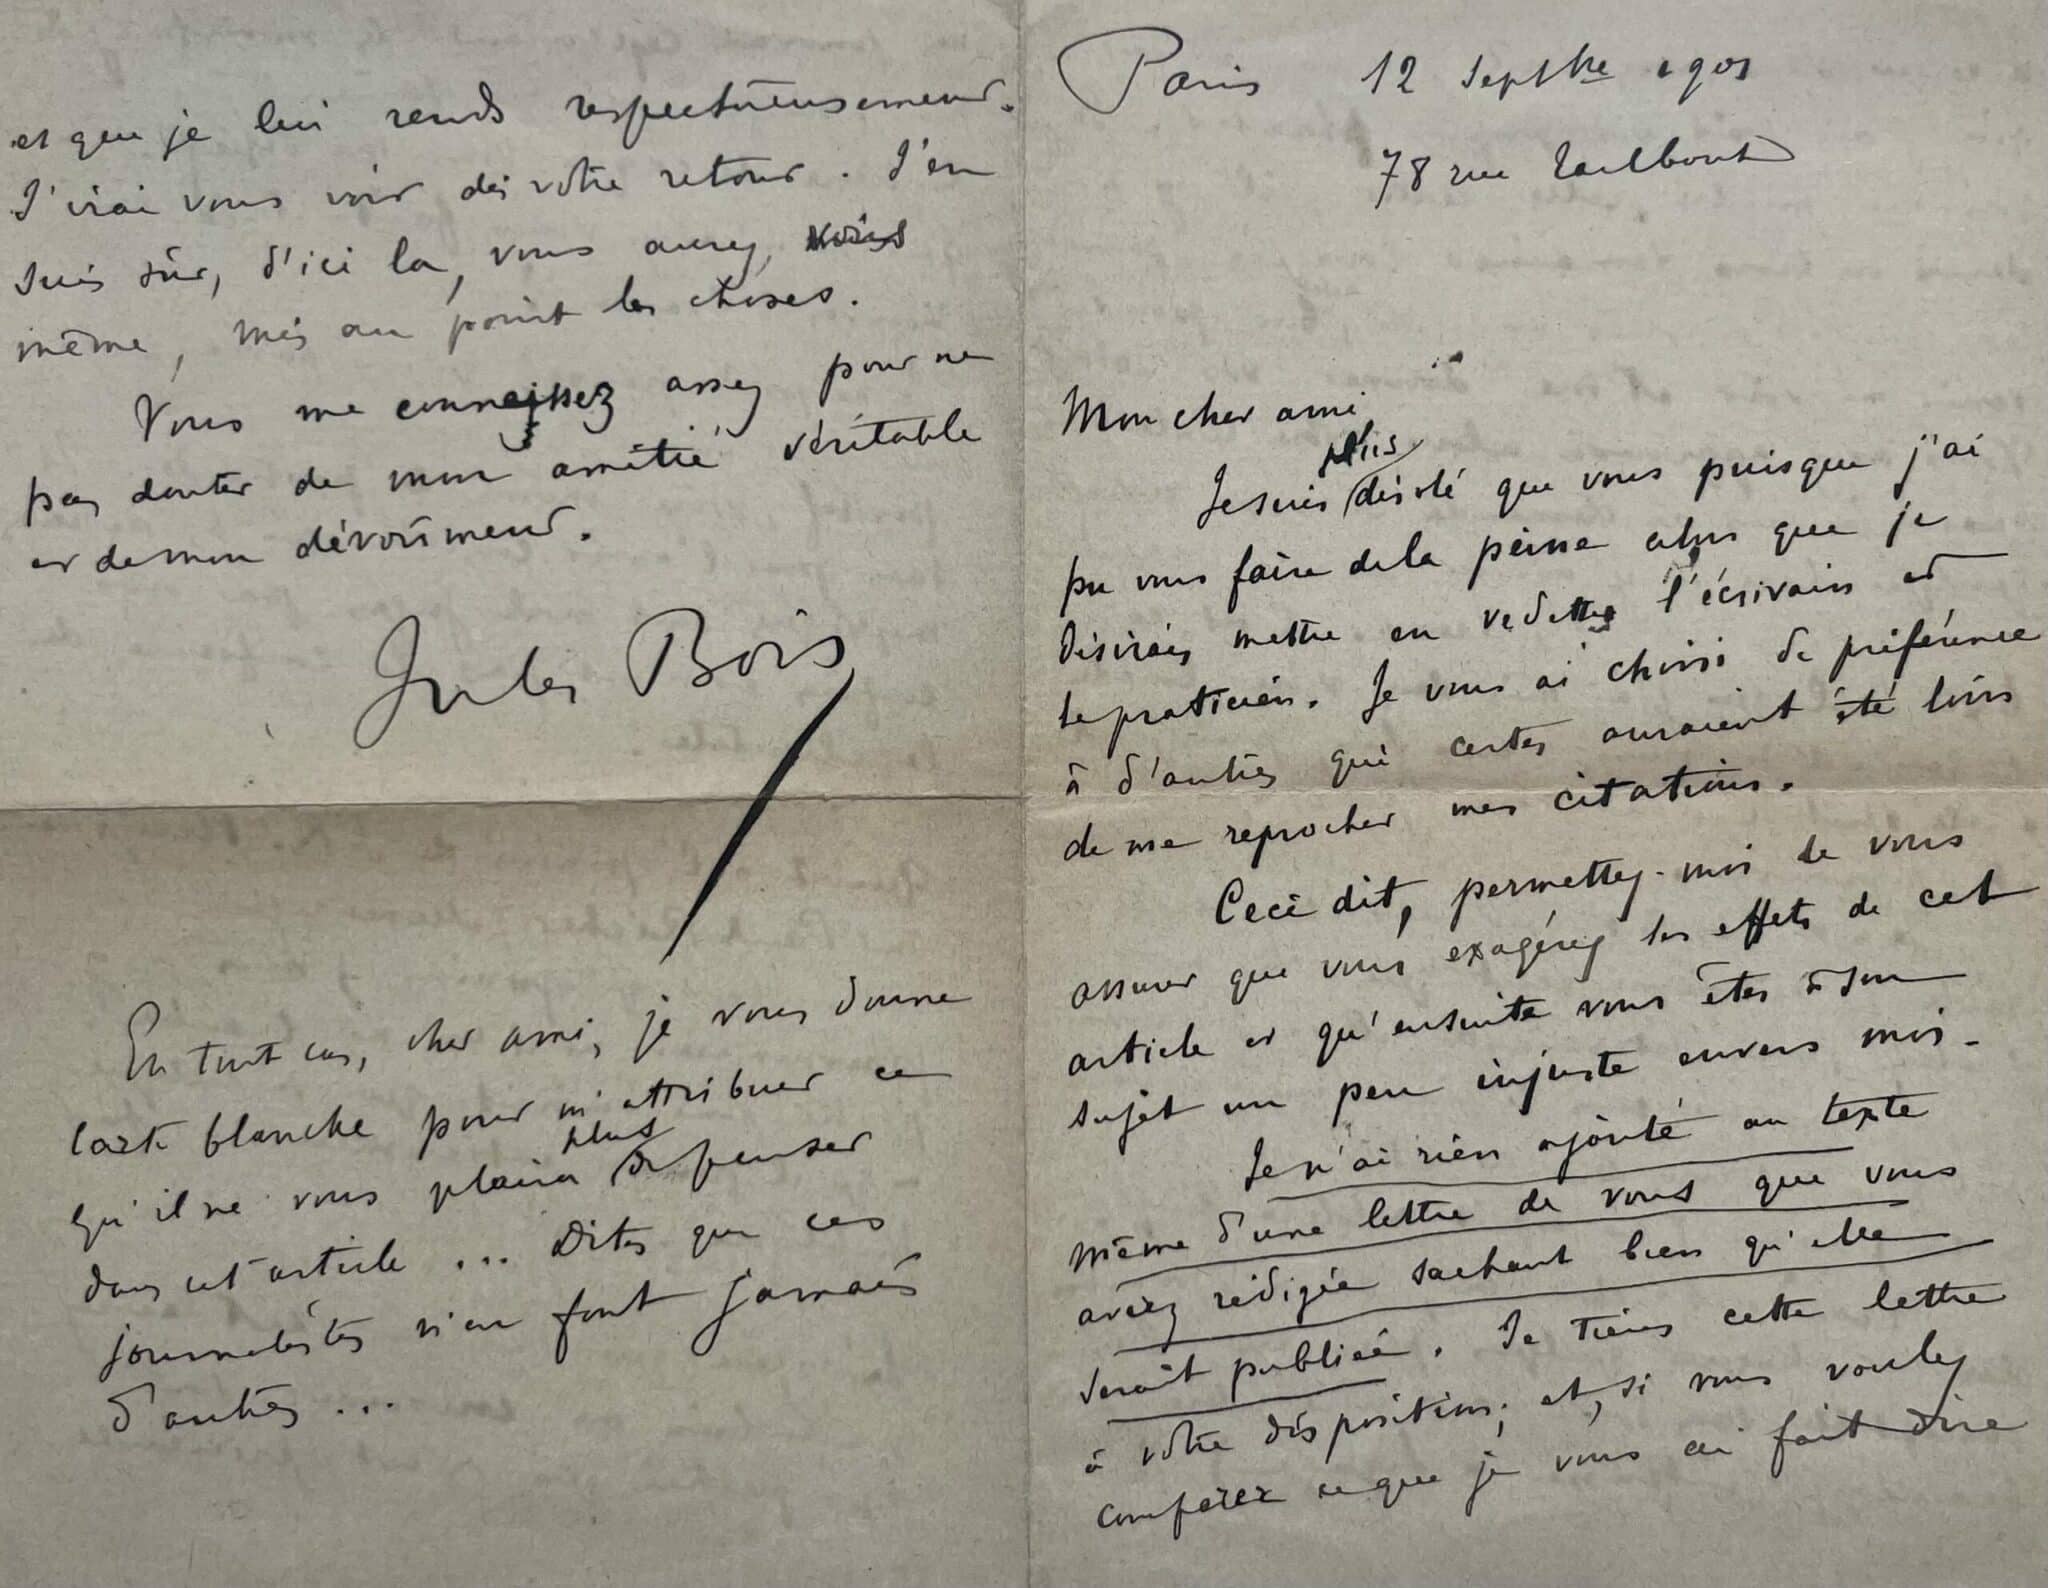 Paris 12 Septbre 1901
78 rue Taitbout
Mon cher ami
Je suis plus désolé que vous puisque j'ai
pu vous faire de la peine alors que je
désirais mettre en vedette l'écrivain et
le praticien. Je vous ai choisi de préférence
à d'autres qui certes auraient été loin
de me reprocher mes citations.
Ceci dit, permettez-moi de vous
assurer que vous exagérez les effets de cet
article et qu'ensuite vous êtes à son
sujet un peu injuste envers moi.
Je n'ai rien ajouté au texte
même d'une lettre de vous que vous
aviez rédigée sachant bien qu'elle
serait publiée. Je tiens cette lettre
à votre disposition; et, si vous voulez
comparer ce que je vous ai fait dire
et que je lui rends respectueusement.
J'irai vous voir dès votre retour. J'en
suis sûr, d'ici là, vous aurez, vous
même, mis au point les choses.
Vous me connaissez assez pour ne
pas douter de mon amitié véritable
et de mon dévoûment.
Jules Bois
En tout cas, cher ami, je vous donne
carte blanche pour m'attribuer ce
qu'il ne vous plaira plus de penser
dans cet article ... Dites que ces
journalistes n'en font jamais
d'autres ...